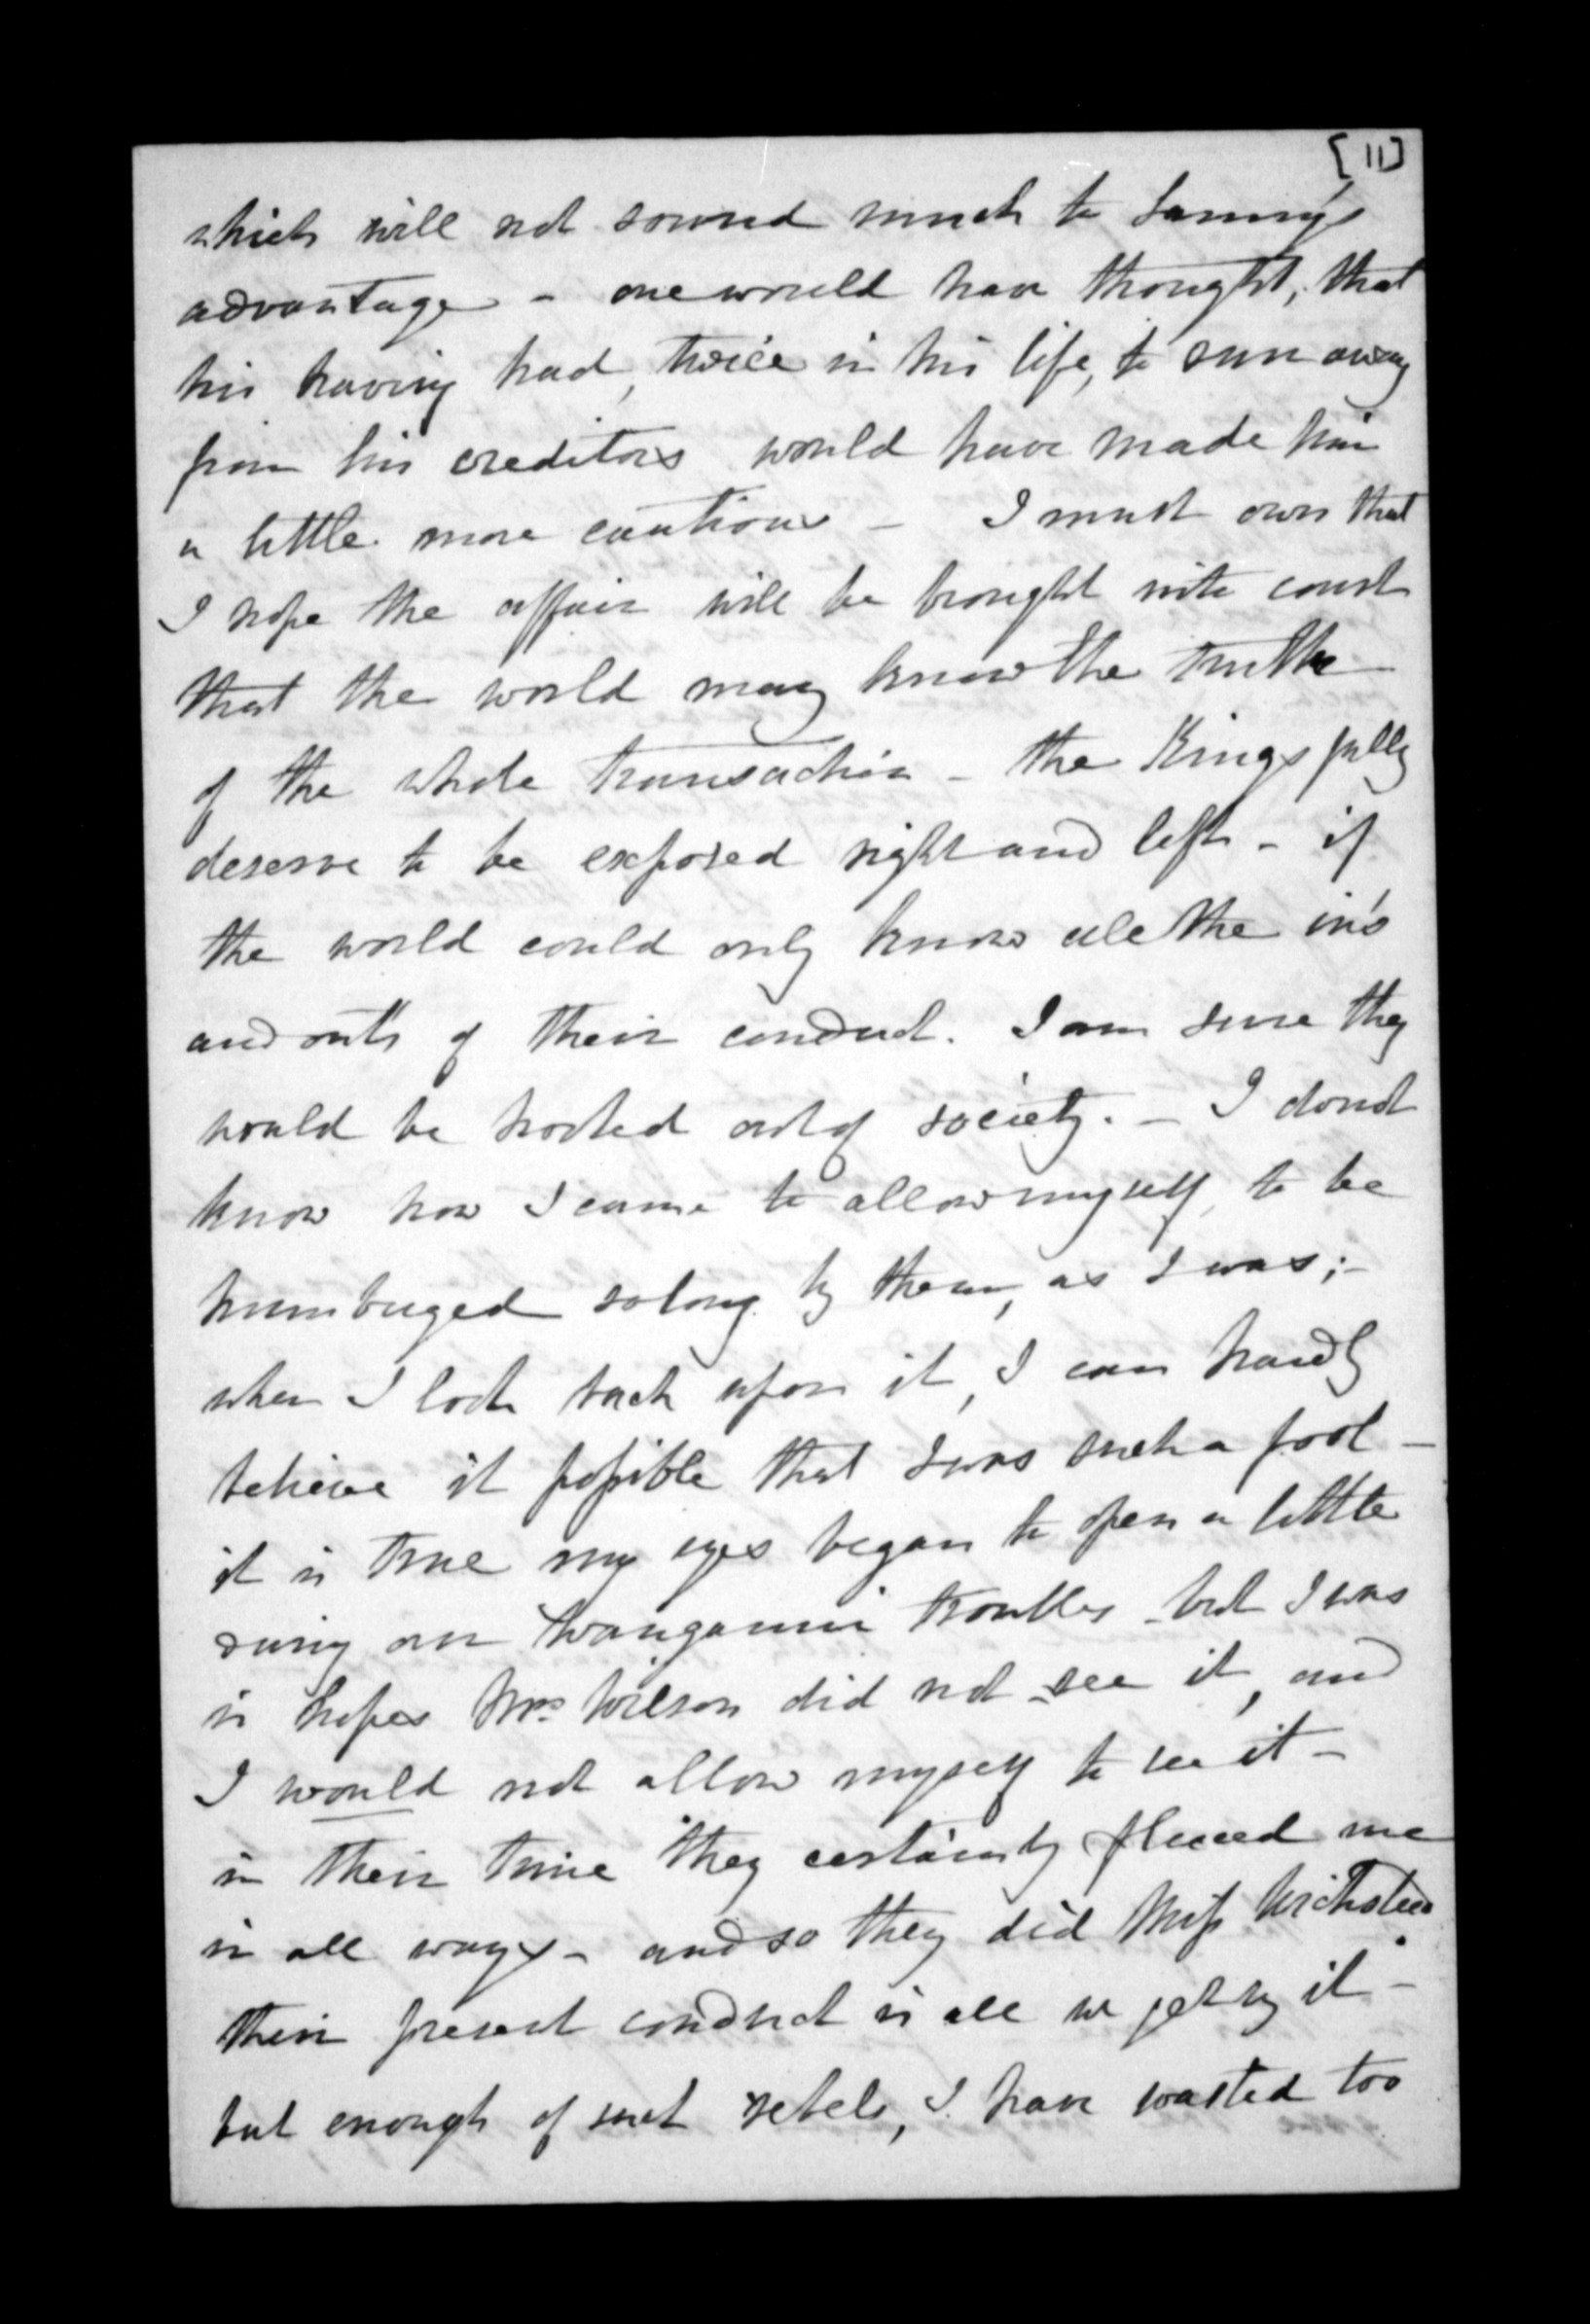 [11]
which will not sound much to Sammy's
advantage - one would have thought, that
his having had, twice in his life, to run away
from his creditors would have made him
a little more cautious - I must own that
I hope the affair will be brought into court
that the world may know the truth
of the whole transaction - the Kings fully
deserve to be exposed right and left - if
the world could only know all the in's
and out's of their conduct. I am sure they
would be hooted out of society. - I donot
know how I came to allow myself, to be
humbuged so long by them, as I was; -
when I look back upon it, I can hardly
believe it possible that I was such a fool -
it is true my eyes began to open a little
during our Wanganui troubles - but I was
in hopes Mrs. Wilson did not see it, and
I would not allow myself to see it -
in their time they certainly fleeced me
in all ways - and so they did Miss
their present conduct is all we get by it -
but enough of such rebels, I have wasted too